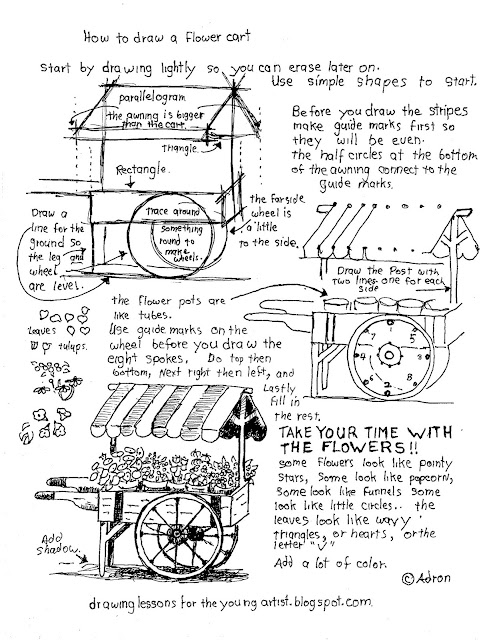 How to draw a flower cart
Start by drawing lightly so you can erase later on.
Use simple shapes to start.
parallelogram
the awning is bigger
than the cart.
Triangle.
Rectangle.
Before you draw the stripes
make guide marks first so
they will be even.
the half circles at the bottom
of the awning connect to the
guide marks.
Draw a
line for the
ground so
the leg and
wheel
are level.
Trace around
something
round to
make
wheels.
the far side
wheel is
a little
to the side.
Draw the Post with
two lines. one for each
side
the flower pots are
like tubes.
Use guide marks on the
wheel before you draw the
eight spokes. Do top then
bottom, next right then left, and
Lastly
fill in
the rest.
1
5
3
8
2
6
4
7
leaves
tulips.
TAKE YOUR TIME WITH
THE FLOWERS!!
some flowers look like pointy
stars, some look like popcorn,
some look like funnels some
look like little circles.. the
leaves look like wavy
triangles, or hearts, or the
letter "V"
Add a lot of color.
Add
shadow.
© Adron
drawinglessonsfortheyoungartist.blogspot.com.